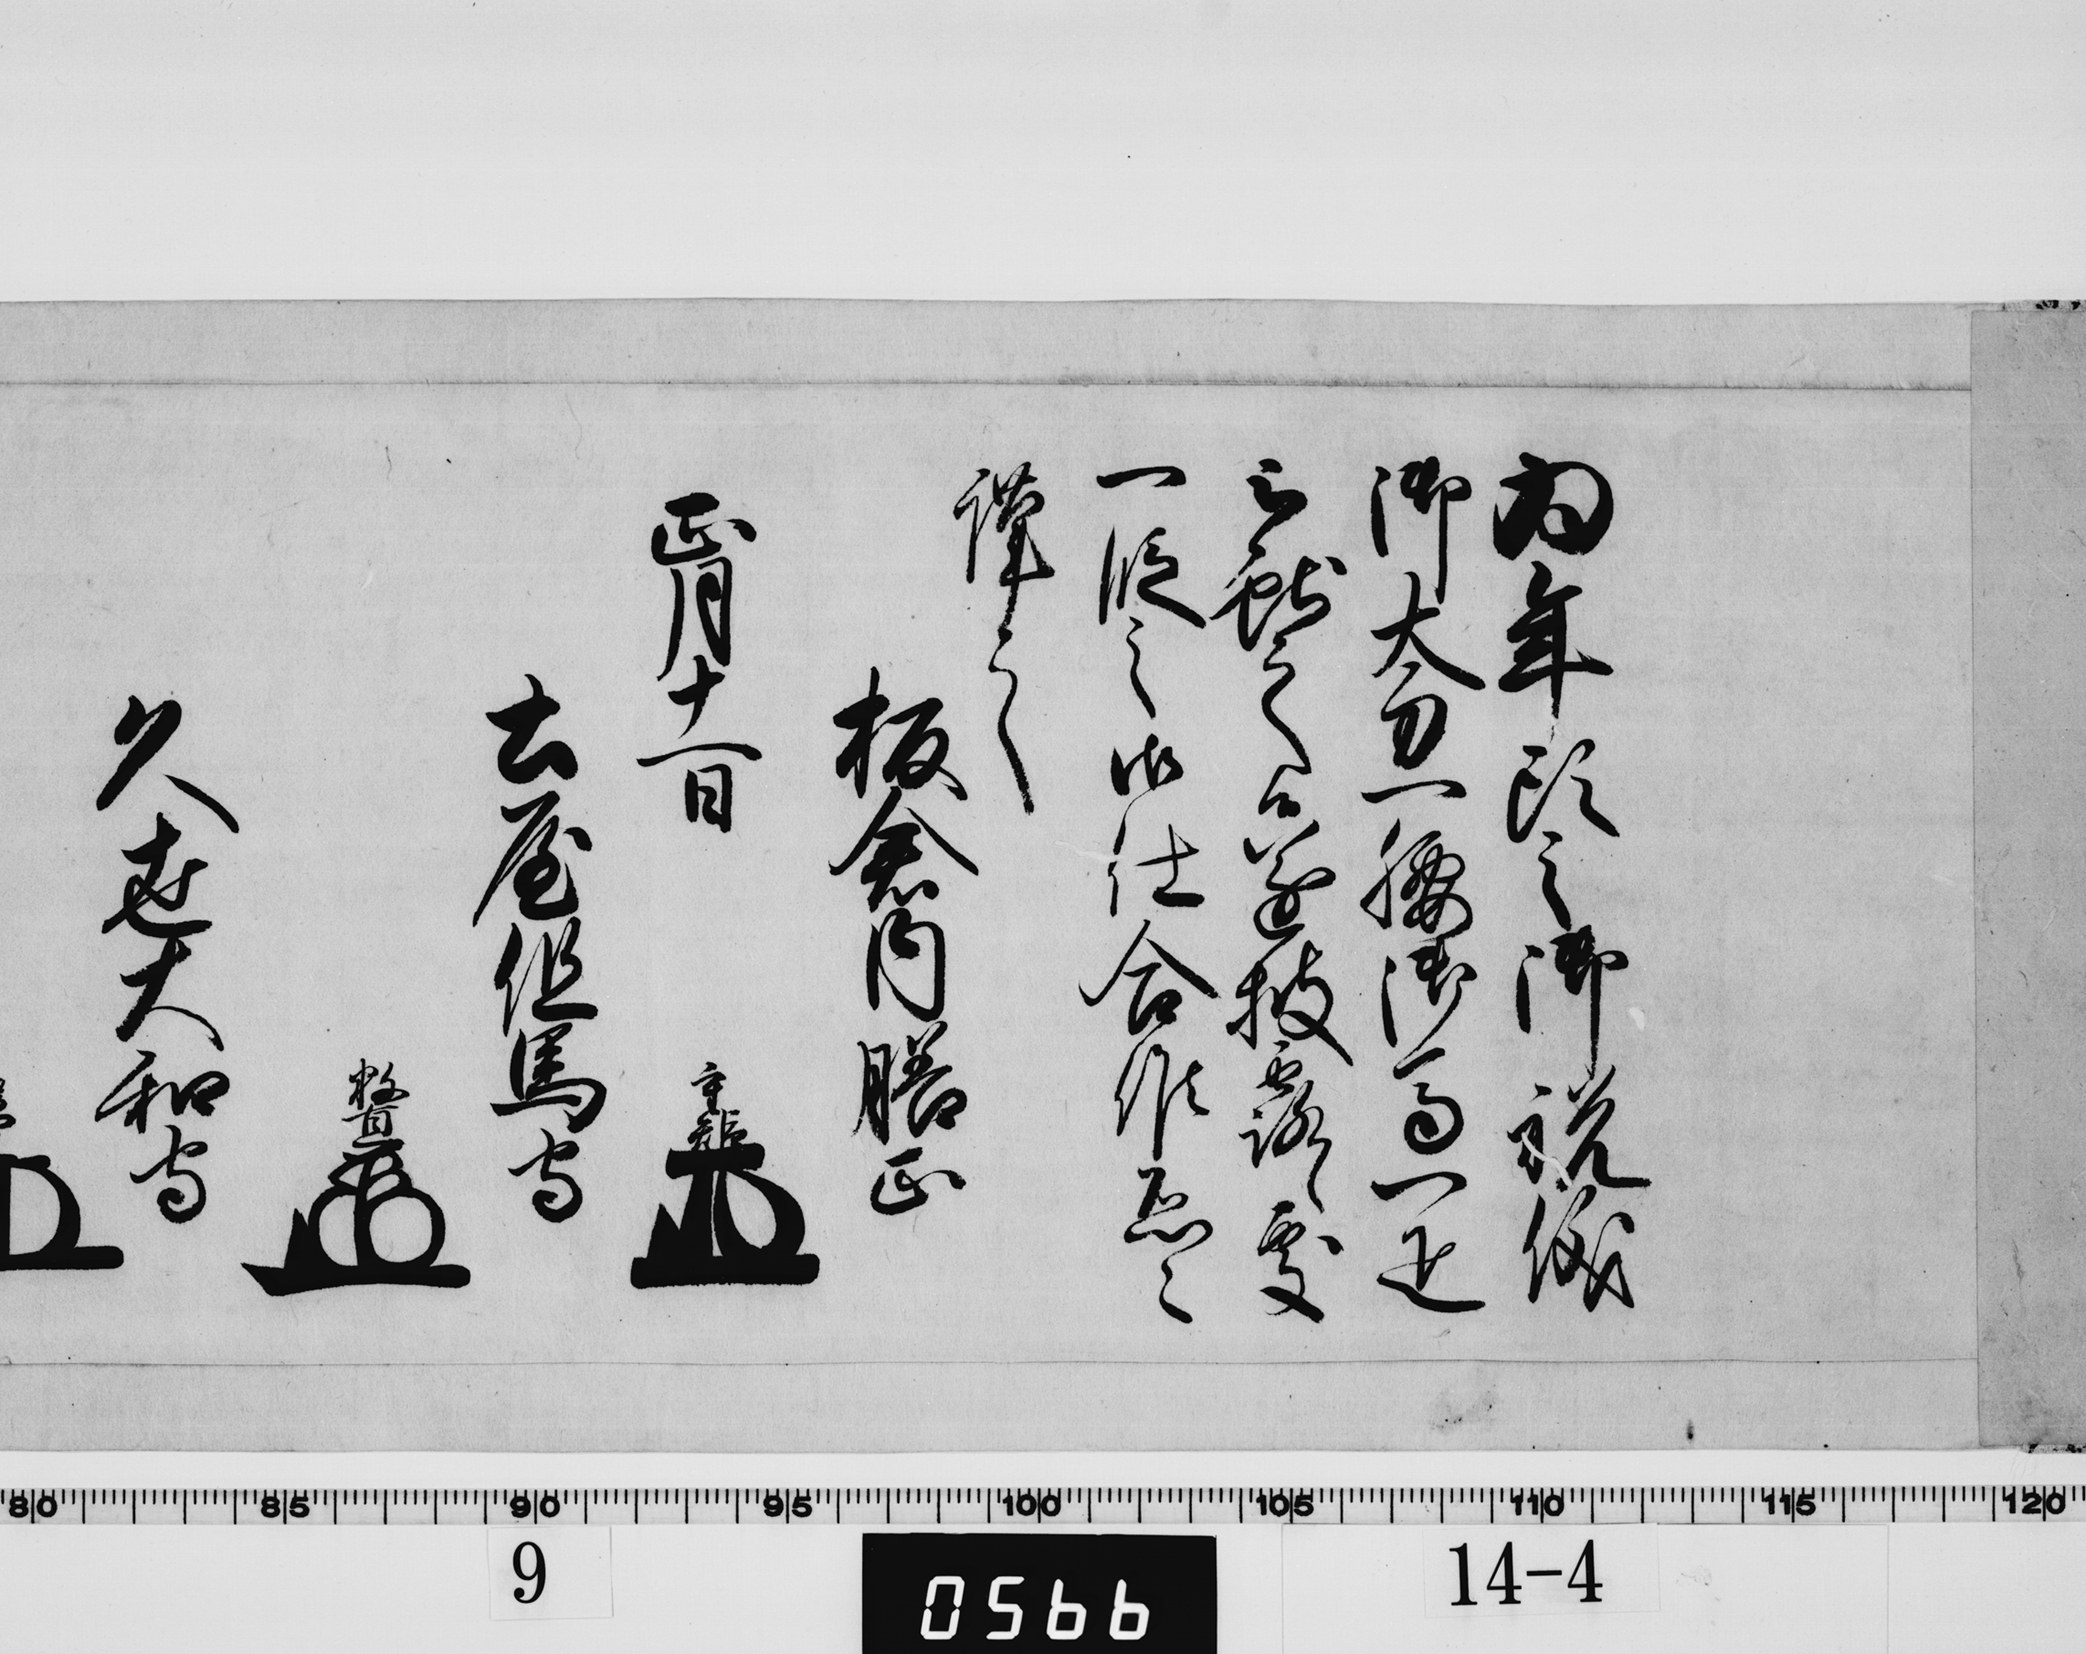 為年頭之御祝儀
御太刀一腰御馬一疋
被献之候遂披露候處
一段之御仕合候恐々
謹言
板倉内膳正
正月十一日
重矩
土屋但馬守
数直
久世大和守
80 85 90 95 100 105 110 115 120
9
0566
14-4